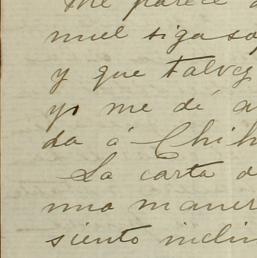 me parece
muel siga so
y que talvez
yo me dé a
da á Chih
La carta d
una maner
siento inclin